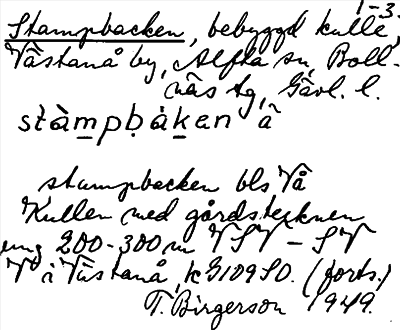 1-3.
Stampbacken, bebyggd kulle,
Västanå by, Alfta sn, Boll-
näs tg, Gävl. l.
stàmpḅàken ä
stampbacken bls Vå
Kullen med gårdstecknen
ung 200-300 m VSV - SV
V i Västanå, k G109 SO. (forts.)
T. Birgerson 1949.